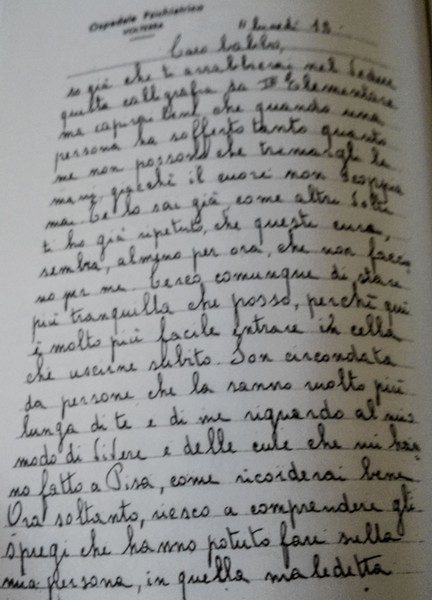 Ospedale Psichiatrico
VOLTERRA
lunedì 13.
Caro babbo,
so già che ti arrabbierai nel vedere
questa calligrafia da IIª Elementare
ma capirai bene che quando una
persona ha sofferto tanto quanto
me non possono che tremargli le
mani, giacchè il cuore non scoppia
mai. Te lo sai già, come altre volte
ti ho già ripetuto, che queste cure,
sembra, almeno per ora, che non faccia
no per me. Cerco comunque di stare
più tranquilla che posso, perchè qui
è molto più facile entrare in cella
che uscirne subito. Son circondata
da persone che la sanno molto più
lunga di te e di me riguardo al mio
modo di vivere e delle cure che mi han=
no fatto a Pisa, come ricorderai bene
Ora soltanto, riesco a comprendere gli
spregi che hanno potuto fare sulla
mia persona, in quella maledetta